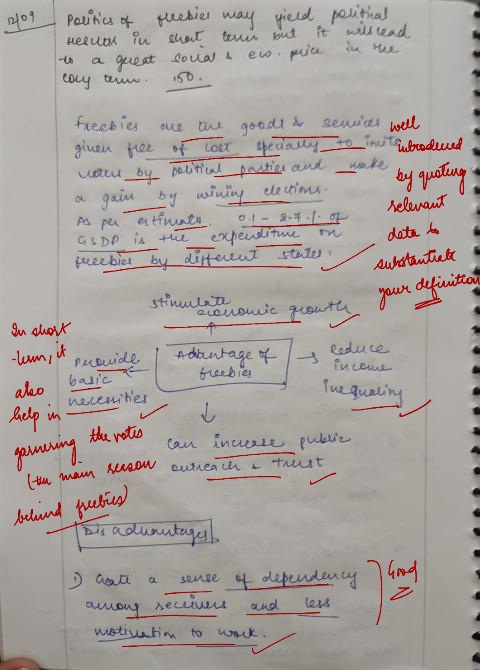 12/09
Politics of freebies may yield political
results in short term but it will lead
to a great social & eco. price in the
long term. 150.
Freebies are the goods & services
given free of cost specially to invite
voters by political parties and make
a gain by wining elections.
As per estimate, 0.1 – 2.7 % of
GSDP is the expenditure on
freebies by different states.
well
introduced
by quoting
relevant
data to
substantiate
your definition
Stimulate
economic growth
Advantage of
freebies
Provide
basic
necessities
Reduce
income
inequality
can increase public
outreach & trust
In short
-term, it
also
help in
garnering the votes
(the main reason
behind freebies)
Disadvantages
1) Create a sense of dependency
among receivers and less
motivation to work.
Good